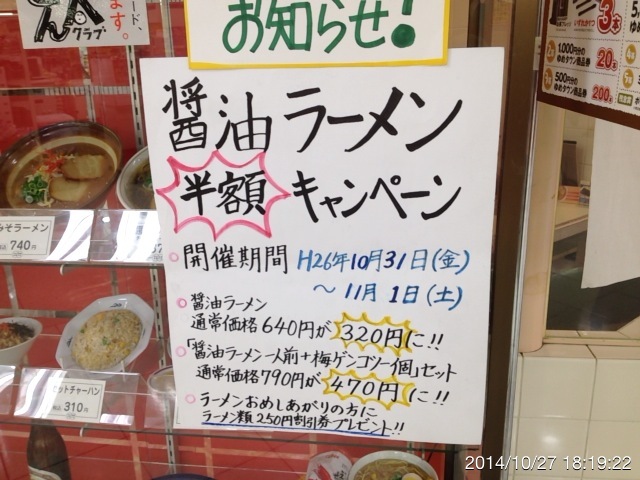 お知らせ!
醤油ラーメン
半額キャンペーン
開催期間 H26年10月31日(金)
～11月1日(土)
醤油ラーメン
通常価格640円が320円に!!
「醤油ラーメン一人前+梅ゲンコツ一個」セット
通常価格790円が470円に!!
ラーメンおめしあがりの方に
ラーメン類250円割引券プレゼント!!
クラブ
ます。
みそラーメン
740円
セットチャーハン
310円
3本
1,000円分の
ゆめタウン商品券
20本
500円分の
ゆめタウン商品券
200本
2014/10/27 18:19:22